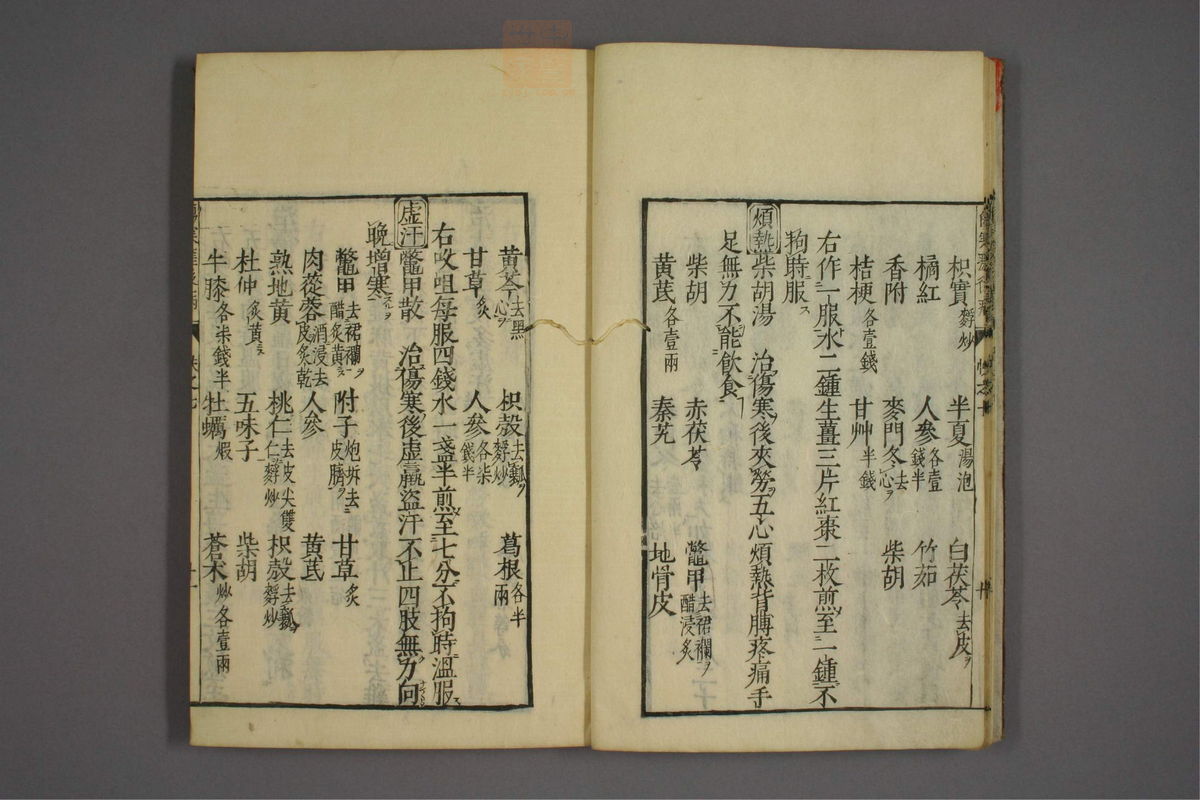 枳實麩炒 半夏湯泡 白茯苓去皮ヲ
橘紅 人參各壹錢半 竹茹
香附 麥門冬去心ヲ 柴胡
桔梗各壹錢 甘艸半錢
右作一服水二鍾生薑三片紅棗二枚煎至一鍾不
拘時服ス
煩熱柴胡湯 治傷寒後夾勞五心煩熱背膊疼痛手
足無力不能飲食
柴胡 赤茯苓 鼈甲去裙襴ヲ醋浸炙
黄茋各壹兩 秦艽 地骨皮
黄芩去黑心ヲ 枳殼去瓤ヲ麩炒 葛根各半兩
甘草炙 人參各柒錢半
右㕮咀每服四錢水一盞半煎至七分不拘時溫服
虛汗鼈甲散 治傷寒後虛羸盜汗不止四肢無力向
晚增寒
鼈甲去裙襴ヲ醋炙黄 附子炮坼去皮臍ヲ 甘草炙
肉蓯蓉酒浸去皮炙乾 人參 黄茋
熟地黄 桃仁去皮尖雙仁麩炒 枳殼去瓤麩炒
杜仲炙黄 五味子 柴胡
牛膝各柒錢半 牡蠣煆 蒼朮炒各壹兩